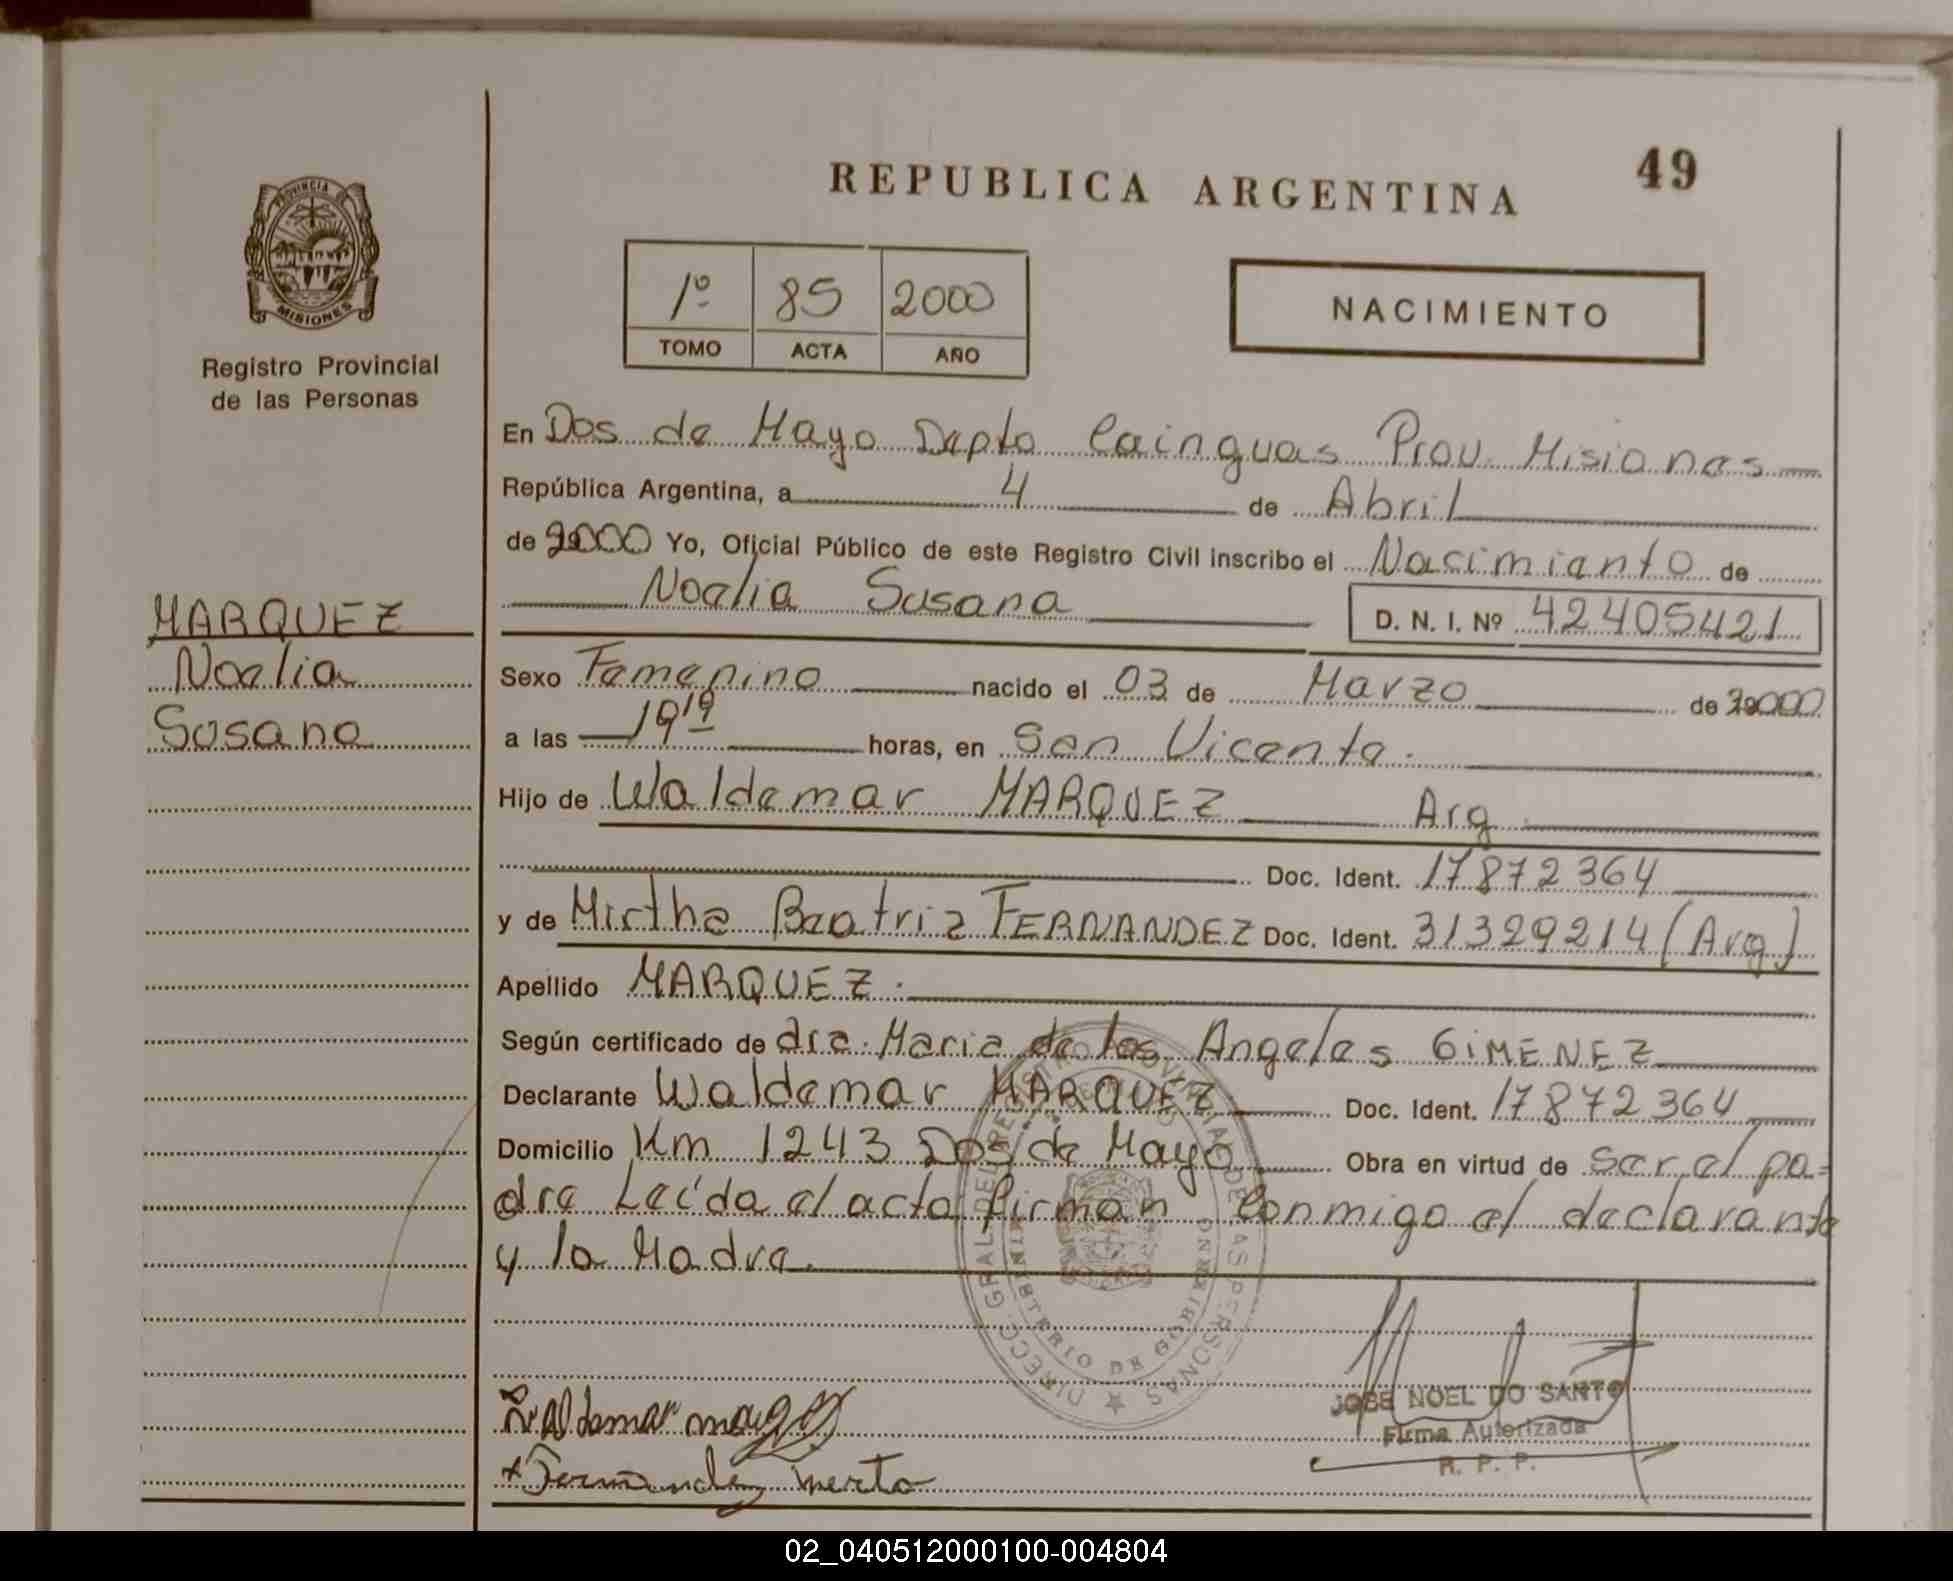 REPUBLICA ARGENTINA
49
PROVINCIA DE
MISIONES
Registro Provincial
de las Personas
1º 85 2000
TOMO ACTA AÑO
NACIMIENTO
En Dos de Mayo Depto Cainguas Prov. Misiones
República Argentina, a 4 de Abril
de 2000 Yo, Oficial Público de este Registro Civil inscribo el Nacimiento de
Noelia Susana
D. N. I. Nº 42405421
MARQUEZ
Noelia
Susana
Sexo Femenino nacido el 03 de Marzo de 2000
a las 19 19 horas, en San Vicente.
Hijo de Waldemar MARQUEZ Arg
Doc. Ident. 17872364
y de Mirtha Beatriz FERNANDEZ Doc. Ident. 31329214 (Arg)
Apellido MARQUEZ.
Según certificado de dra. Maria de los Angeles GiMENEZ
Declarante Waldemar MARQUEZ Doc. Ident. 17872364
Domicilio Km 1243 Dos de Mayo Obra en virtud de ser el pa=
dre Leída el acta firman Conmigo el declarante
y la Madre.
DIRECC. GRAL. DEL REGISTRO PROVINCIAL DE LAS PERSONAS
MINISTERIO DE GOBIERNO
JOSE NOEL DO SANTO
Firma Autorizada
R. P. P.
Fernandez
02_040512000100-004804